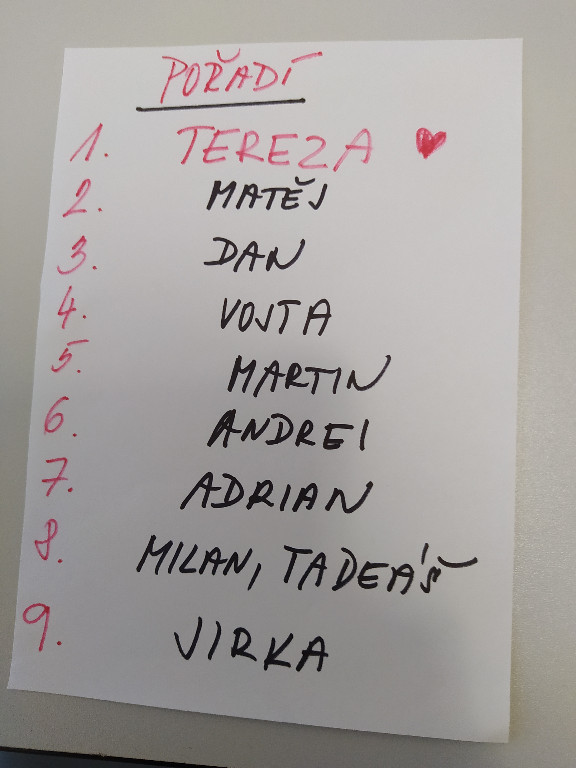 POŘADÍ
1. TEREZA ♥
2. MATĚJ
3. DAN
4. VOJTA
5. MARTIN
6. ANDREI
7. ADRIAN
8. MILAN, TADEÁŠ
9. JIRKA